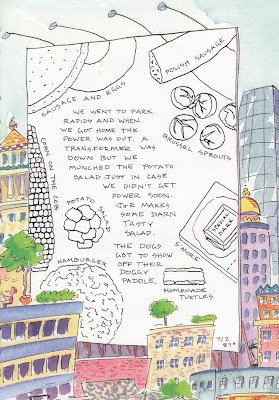 SAUSAGE AND EGGS
POLISH SAUSAGE
BRUSSEL SPROUTS
WE WENT TO PARK
RAPIDS AND WHEN
WE GOT HOME THE
POWER WAS OUT. A
TRANSFORMER WAS
DOWN BUT WE
MUNCHED THE POTATO
SALAD JUST IN CASE
WE DIDN'T GET
POWER SOON.
J&R MAKES
SOME DARN
TASTY
SALAD.
THE DOGS
GOT TO SHOW
OFF THEIR
DOGGY
PADDLE.
CORN ON THE COB
POTATO SALAD
HAMBURGER
S'MORE
HOMEMADE
TURTLES
7/2
87°